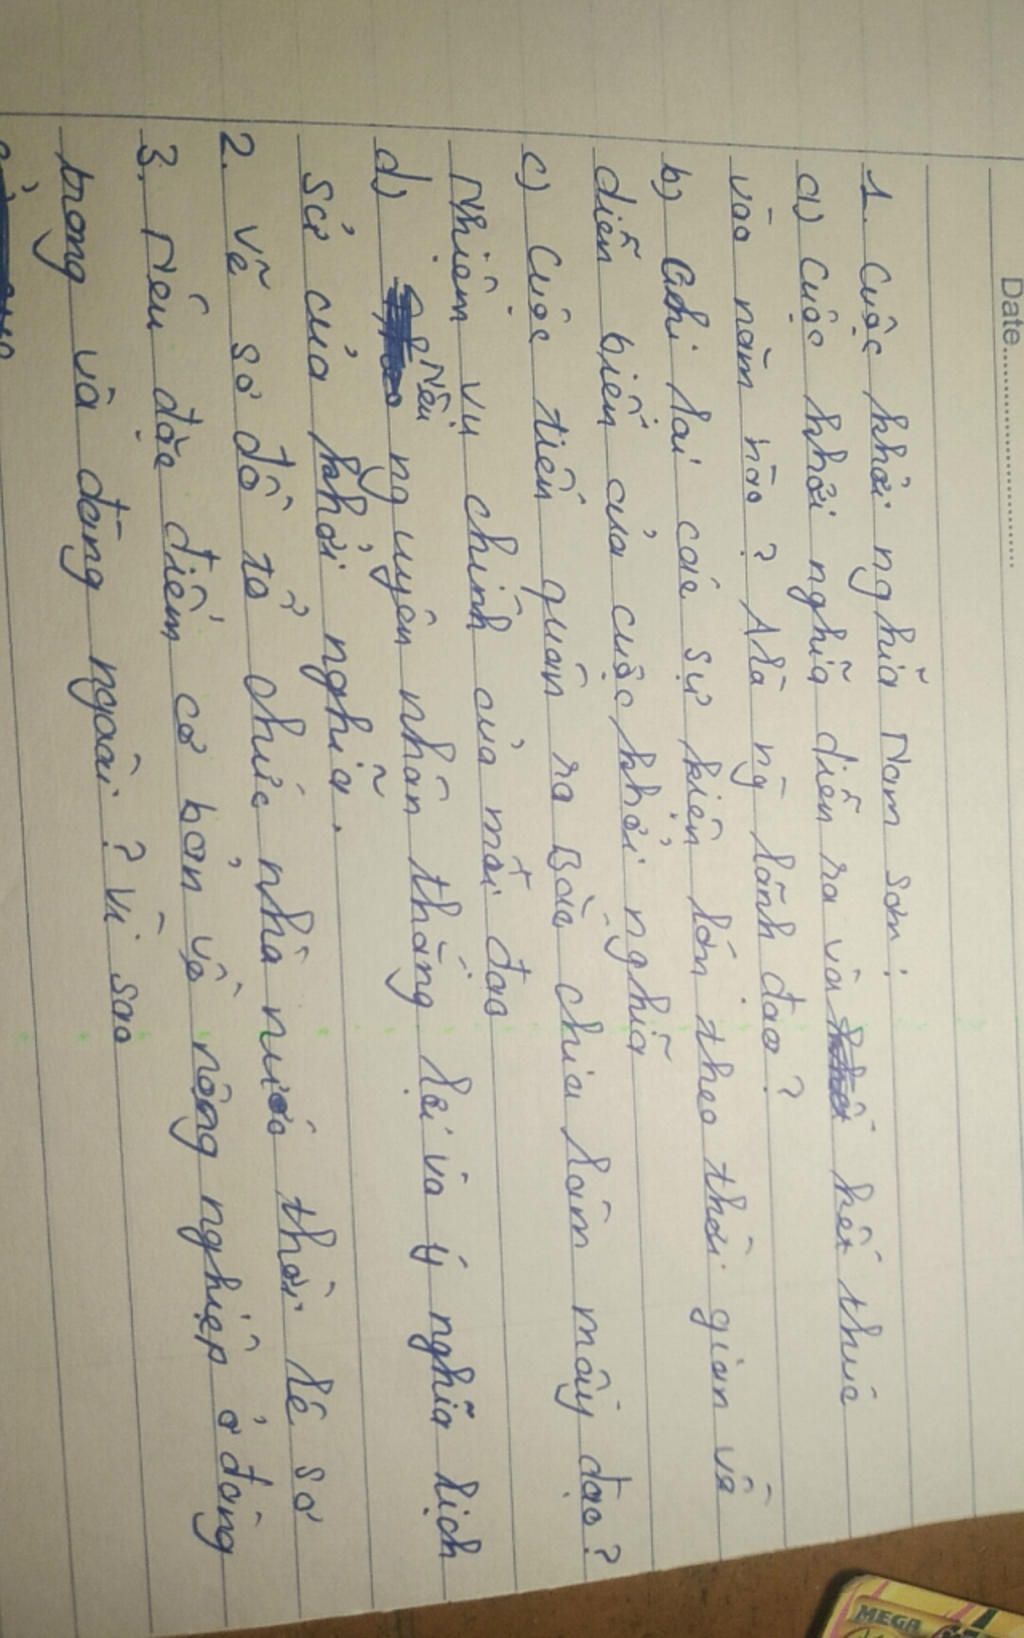 Date
1. Cuộc khởi nghĩa Nam Sơn:
a) Cuộc khởi nghĩa diễn ra và kết thúc
vào năm nào? Ala ng lãnh đạo?
b) Ghi lại các sự kiện lớn theo thời gian về
diễn biến của cuộc khởi nghĩa
c) Cuộc tiến quân ra Bắc chia làm mấy đạo?
Nhiệm vụ chính của mỗi đạo
d) Nêu nguyên nhân thắng lợi và ý nghĩa lịch
sử của khởi nghĩa.
2. Vẽ sơ đồ tổ chức nhà nước thời lê sơ
3. Nêu đặc điểm cơ bản về nông nghiệp ở đàng
trong và đàng ngoài? Vì sao
MEGA